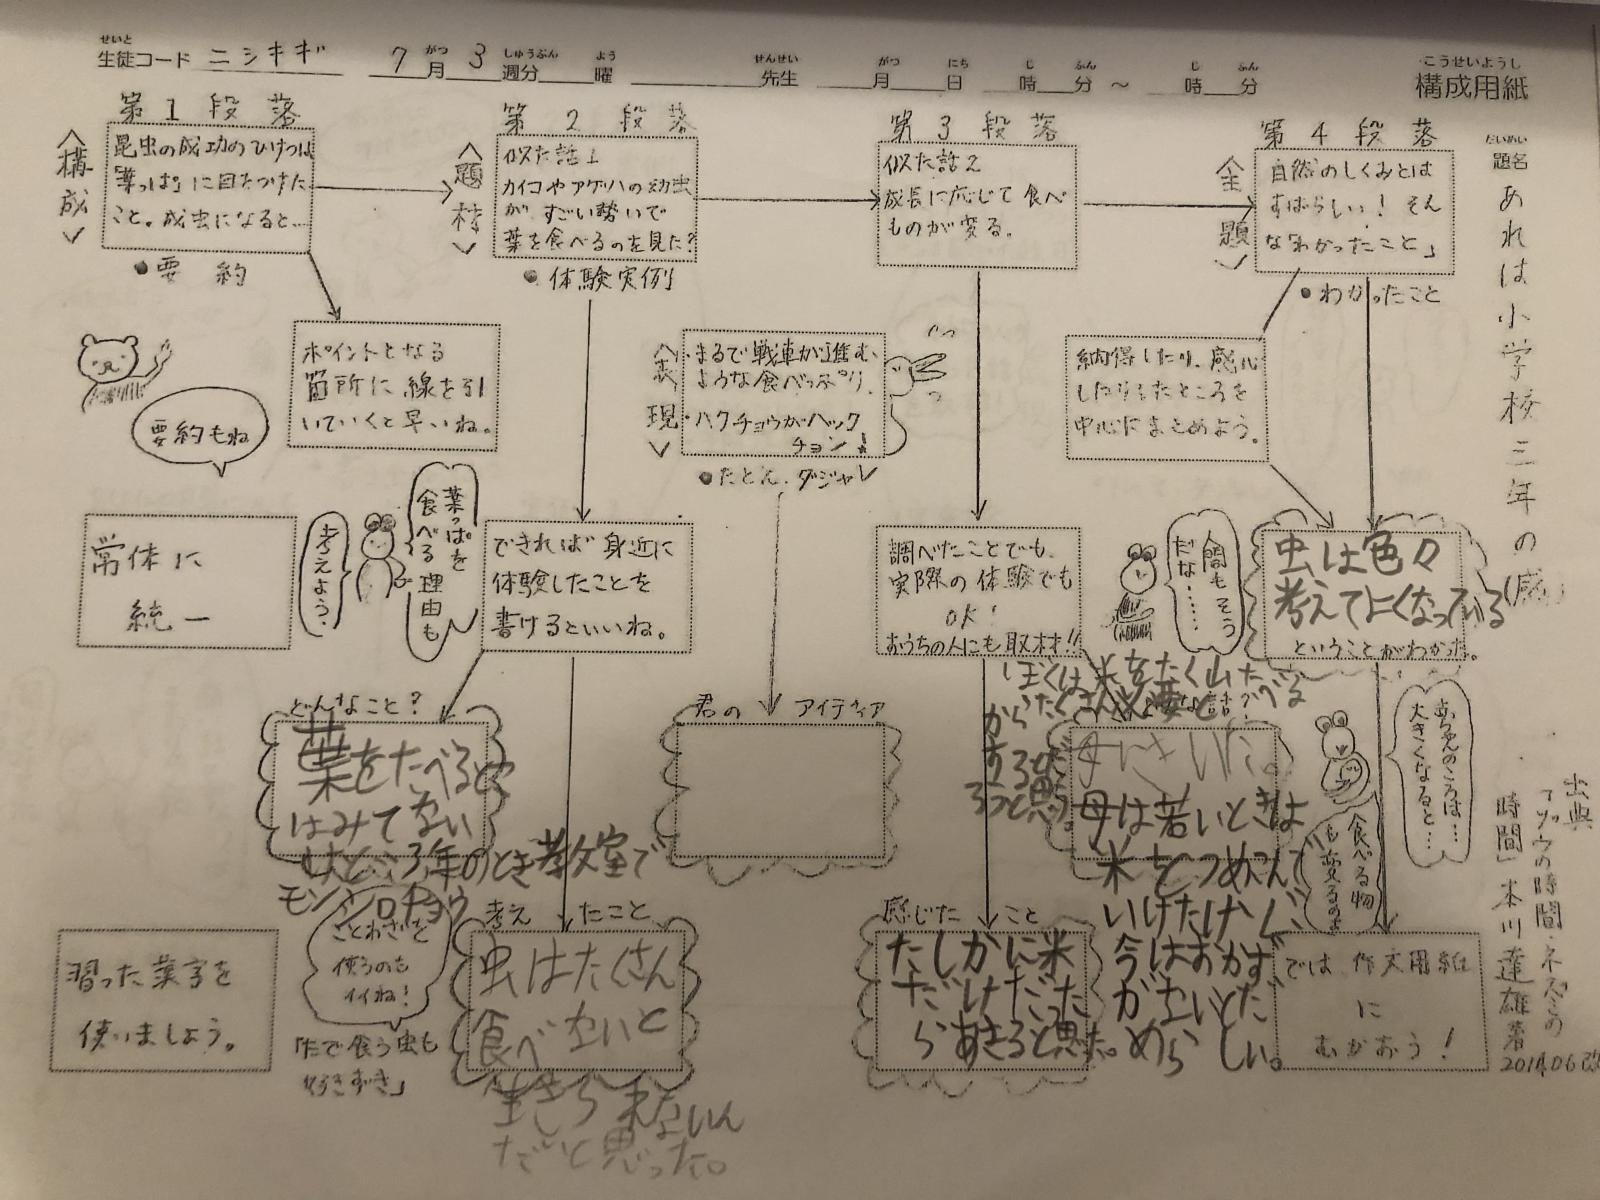 せいと
生徒コード ニシキギ 7月3週分 曜 先生 月 日 時 分 ～ 時 分
こうせいようし
構成用紙
だいめい
題名
あれは小学校三年の(感)
第1段落
〈構成〉
昆虫の成功のひけつは
「葉っぱ」に目をつけた
こと。成虫になると…
●要約
第2段落
〈題材〉
似た話1
カイコやアゲハの幼虫
が、すごい勢いで
葉を食べるのを見た?
●体験実例
第3段落
似た話2
成長に応じて食べ
ものが変る。
第4段落
〈主題〉
自然のしくみとは
すばらしい！そん
な「わかったこと」
●わかったこと
要約もね
ポイントとなる
箇所に線を引
いていくと早いね。
〈表現〉
・まるで戦車が進む
ような食べっぷり
・ハクチョウがハック
チョン！
●たとえ.ダジャレ
納得したり、感心
したりしたところを
中心にまとめよう。
常体に
統一
考えよう。
葉っぱを
食べる理由も
できれば身近に
体験したことを
書けるといいね。
調べたことでも、
実際の体験でも
OK！
おうちの人にも取材!!
人間もそう
だな……
虫は色々
考えてにくなっている
ということがわかった。
どんなこと?
葉をたべるとこ
はみてない
けど、3年のとき教室で
モンシロチョウ
君の アイディア
ぼくは米をたく山たべる
から
するんだ
ろうと思う。
母にきいた。
母は若いときは
米をつめこんで
いけたけど、
今はおかず
がないとだ
めらしい。
あちゃんのころは…
大きくなると…
食べる物
も変るのよ
出典
「ゾウの時間・ネズミの
時間」本川達雄著
2014.06改
習った漢字を
使いましょう。
ことわざを
使うのも
イイね！
「たで食う虫も
好きずき」
考え たこと
虫はたくさん
食べないと
生きられないん
だと思った。
感じた こと
たしかに米
だけだった
らあきると思った。
では 作文用紙
に
むかおう！